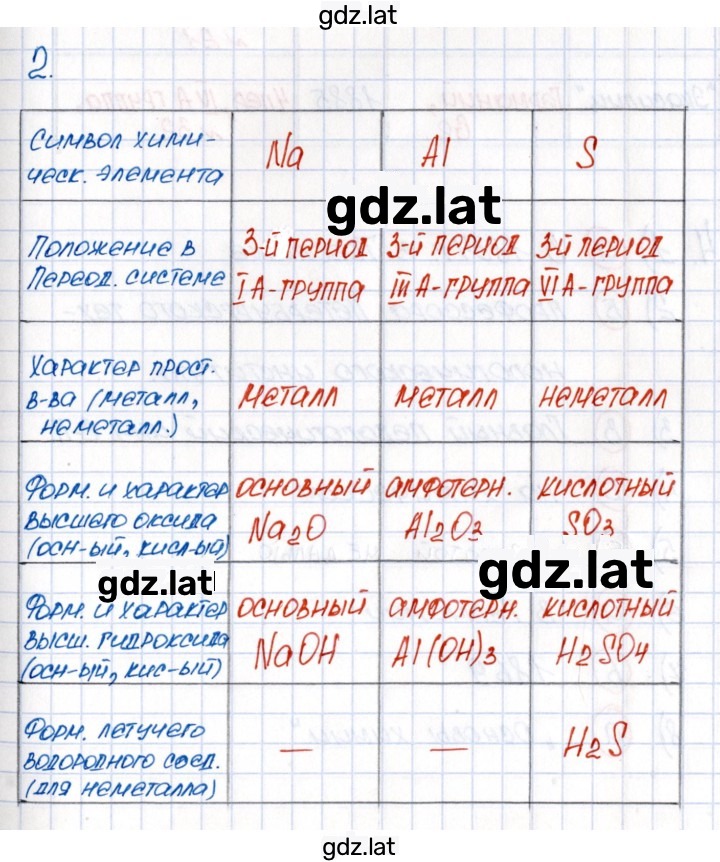 gdz.lat
2.
Символ хими-
ческ. элемента
Na
Al
S
gdz.lat
Положение в
Период. системе
3-й период
IA-группа
3-й период
IIIA-группа
3-й период
VIA-группа
Характер прост.
в-ва (металл,
неметалл.)
металл
металл
неметалл
Форм. и характер
высшего оксида
(осн-ый, кисл-ый)
основный
Na2O
амфотерн.
Al2O3
кислотный
SO3
gdz.lat
gdz.lat
Форм. и характер
высш. гидроксида
(осн-ый, кис-ый)
основный
NaOH
амфотерн.
Al(OH)3
кислотный
H2SO4
Форм. летучего
водородного соед.
(для неметалла)
—
—
H2S
gdz.lat